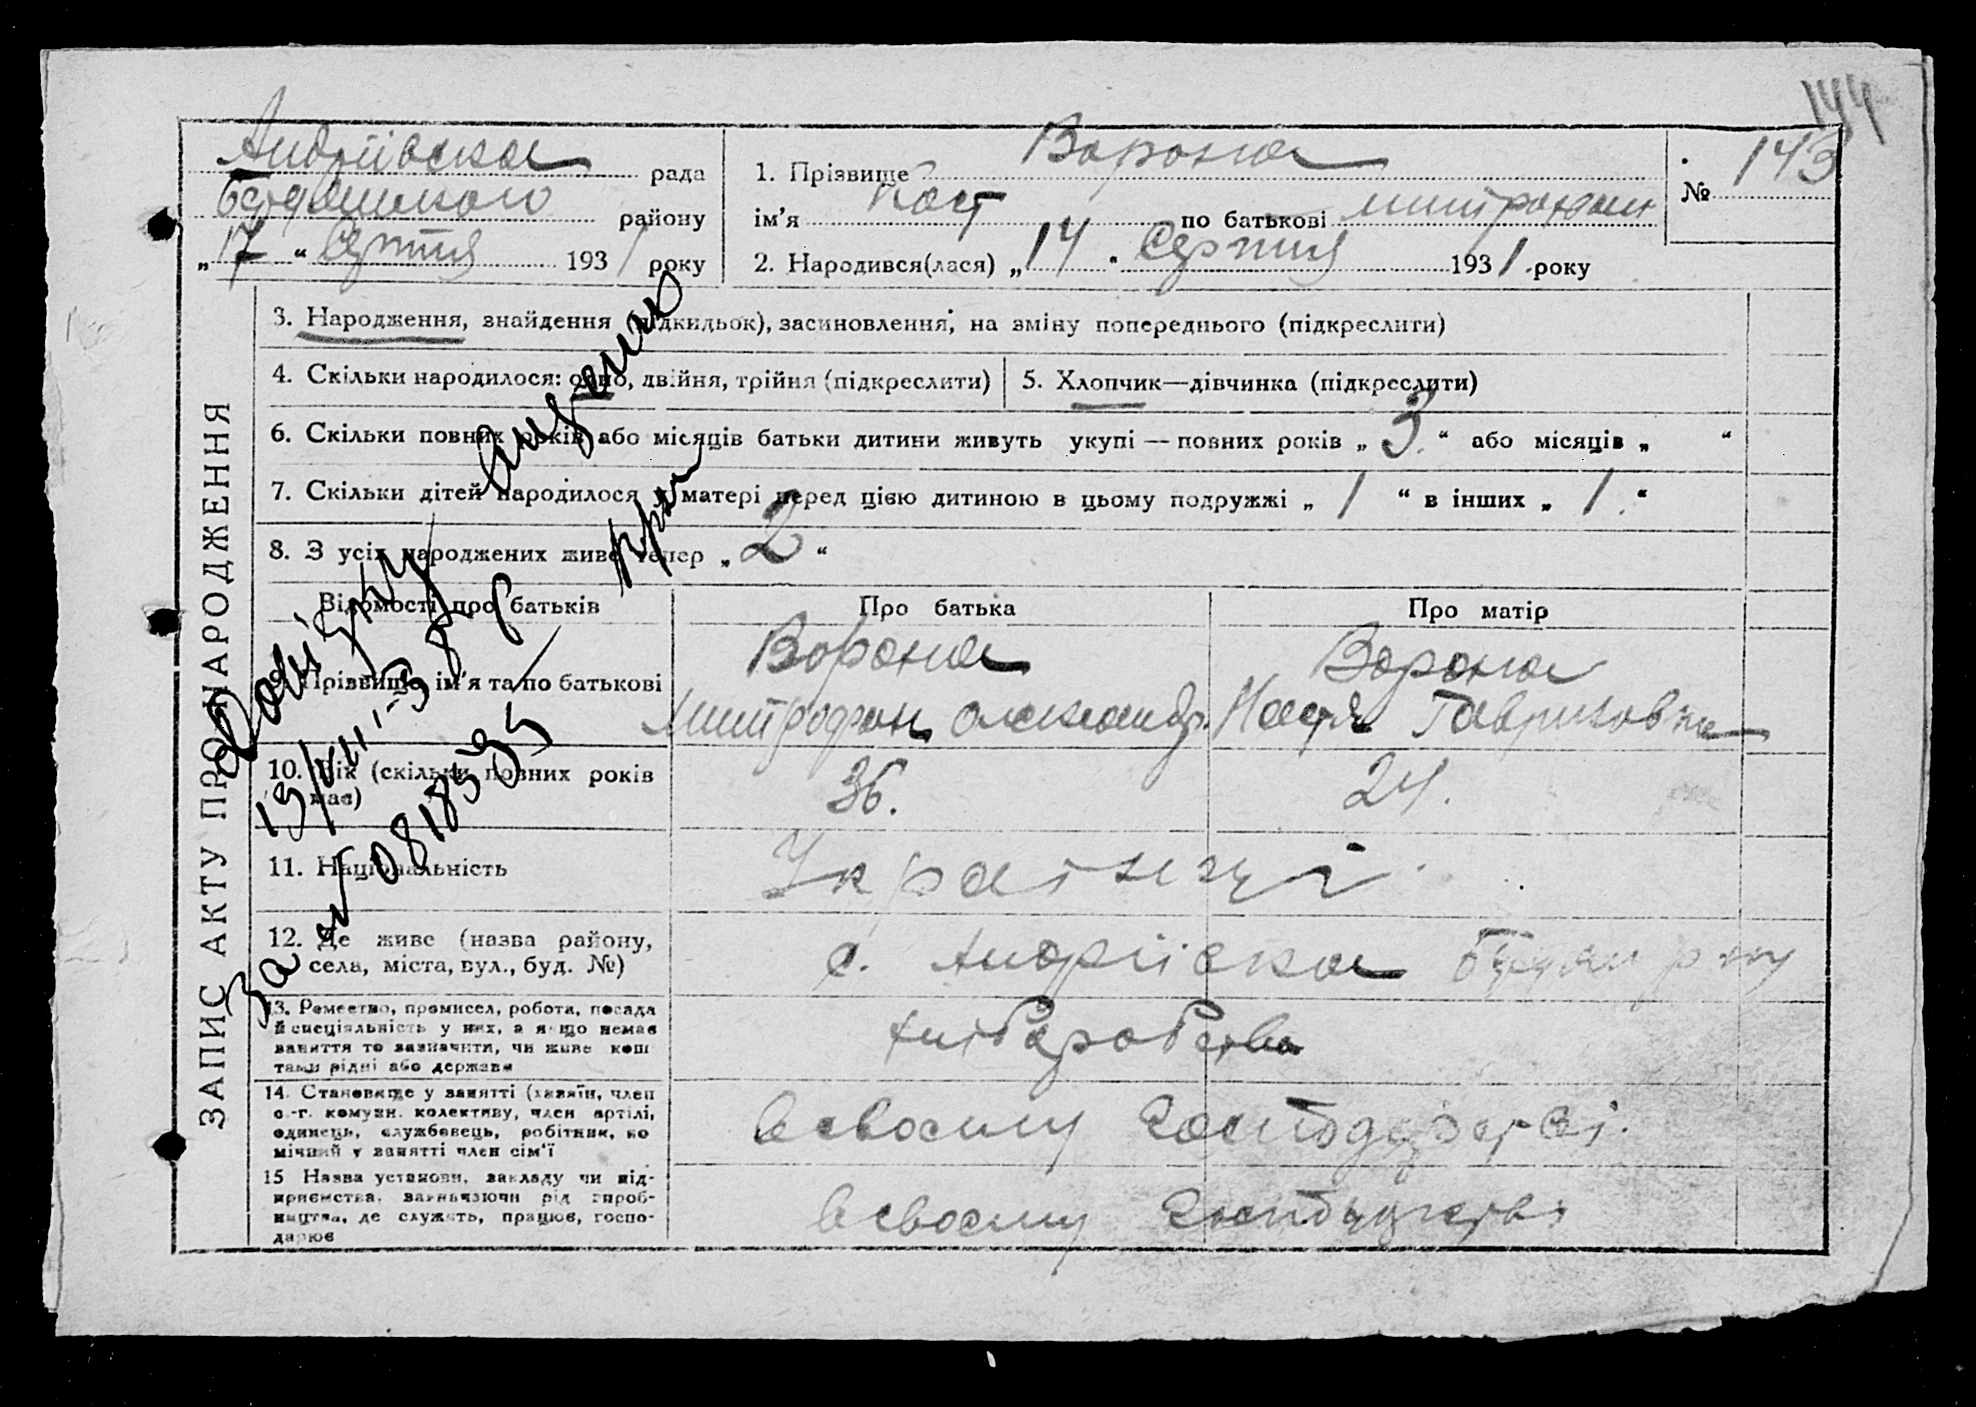 144
Андріївска рада
району
„17“ Серпня 1931 року
1. Прізвище Ворона
ім'я Кост по батькові митрофан
2. Народився(лася) „14“ Серпня 1931 року
№ 143
ЗАПИС АКТУ ПРО НАРОДЖЕННЯ
3. Народження, знайдення (підкидьок), засиновлення, на зміну попереднього (підкреслити)
4. Скільки народилося: одно, двійня, трійня (підкреслити)
5. Хлопчик—дівчинка (підкреслити)
6. Скільки повних років або місяців батьки дитини живуть укупі — повних років „3“ або місяців „ “
7. Скільки дітей народилося у матері перед цією дитиною в цьому подружжі „1“ в інших „1“
8. З усіх народжених живе тепер „2“
Відомості про батьків
Про батька
Про матір
Прізвище, ім'я та по батькові
Ворона
Митрофан Олександр.
Ворона
Настя Гавриловна
10. Вік (скільки повних років має)
36.
24.
11. Національність
Українці
12. Де живе (назва району,
села, міста, вул., буд. №)
с. Андріївска
13. Ремество, промисел, робота, посада
й спеціяльність у них, а якщо немає
заняття то зазначити, чи живе кош
тами рідні або держави
хліборобство
14. Становище у занятті (хазяїн, член
с.-г. комуни, колективу, член артілі,
одинець, службовець, робітник, по
мічний у занятті член сім'ї
в своєму господарстві.
15 Назва установи, закладу чи під-
приємства, зазначаючи рід вироб-
ництва, де служить, працює, госпо-
дарює
в своєму господарстві